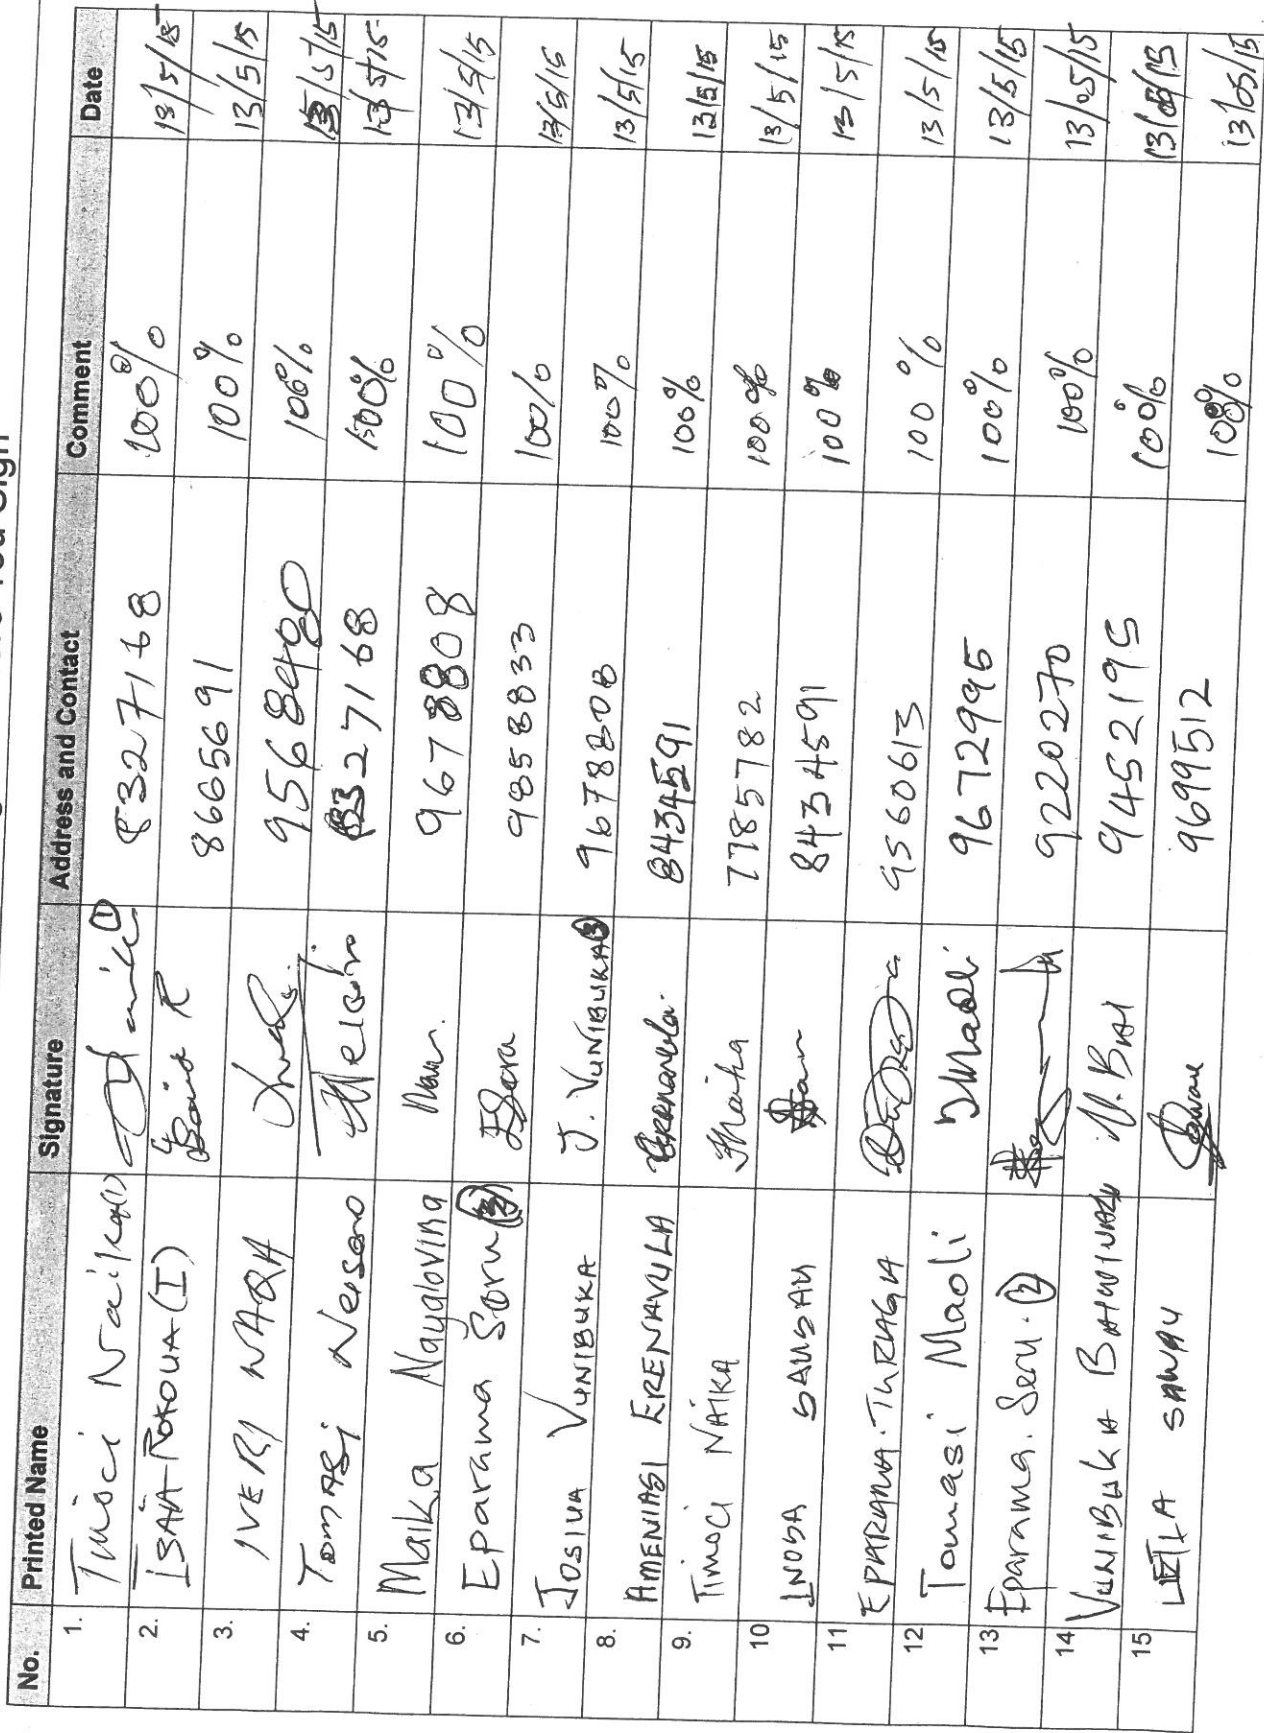 You Sign
No. Printed Name Signature Address and Contact Comment Date
1. Timoci Naika(1) 8327168 100% 13/5/15
2. ISAIA ROKOUA (I) 8665691 100% 13/5/15
3. IVERI NAQA 9568480 100% 13/5/15
4. Tomasi Neisoro 8327168 100% 13/5/15
5. Maika Nayalovina 9678808 100% 13/5/15
6. Eparama Seru (3) ESeru 9858833 100% 13/5/15
7. JOSIUA VUNIBUKA J. VUNIBUKA(3) 9678808 100% 13/5/15
8. AMENIASI ERENAVULA Erenavula. 8434591 100% 13/5/15
9. Timoci NAIKA Tnaika 7785782 100% 13/5/15
10 INOSA SAUSAU 8434591 100% 13/5/15
11 EPARAMA. TURAGA 9560613 100% 13/5/15
12 Tomasi Maoli TMaoli 9672995 100% 13/5/15
13 Eparama. Seru. (2) 9220270 100% 13/05/15
14 VUNIBUKA V. BAI 9452195 100% 13/05/15
15 LEILA SAWAU 9699512 100% 13/05/15